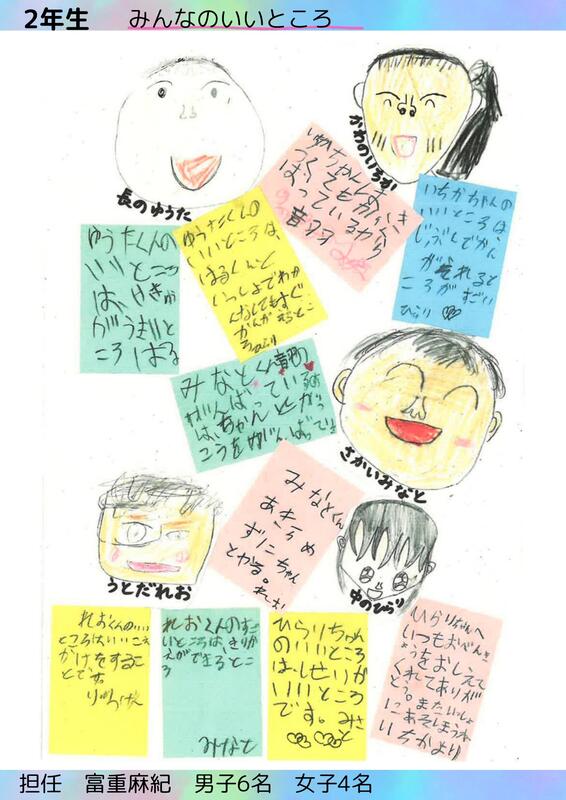 2年生　みんなのいいところ
長のゆうた
かわのいちか
ゆうたくんの
いいところ
は、けきが
がうまいと
ころ　はる
ゆうたくんの
いいところは、
はるくんと
いっしょでわか
んなくてもすぐ
かんがえるとこ
いちかちゃんの
いいところは
じぶんでかん
がえれると
ころがすごい
ひらり
みなとくん
がんばっている
は、ちゃんとがっ
こうをがんばってる
さかいみなと
みなとくん
あきらめ
ずにちゃん
とやる。
れお
うとだれお
中のひらり
れおくんのいい
ところはいいこえ
かけをするこ
とです。
れおくんのすご
いところは、きりか
えができるとこ
ろ
みなと
ひらりちゃん
のいいところ
は、せいりが
いいところ
です。みさと
ひらりちゃんへ
いつもおべんき
ょうをおしえて
くれてありが
とう。またいっしょ
にあそしまうね
いちかより
担任　富重麻紀　男子6名　女子4名